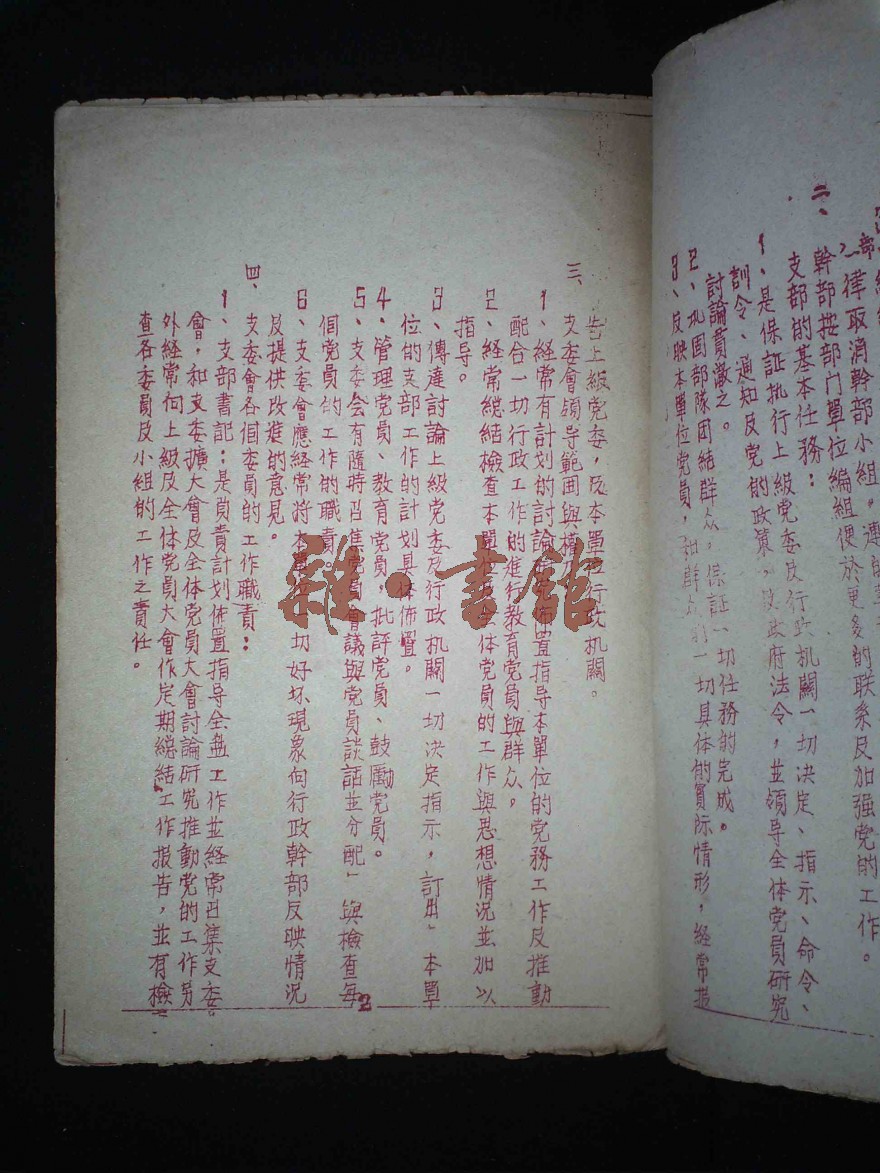 一律取消幹部小組。
幹部按部门單位編組便於更多的联系及加强党的工作。
二、支部的基本任務：
1、是保証执行上級党委及行政机關一切决定、指示、命令、
訓令、通知及党的政策，政府法令，並領导全体党員研究
討論貫澈之。
2、巩固部隊团結群众，保証一切任務的完成。
3、反映本單位党員，和群众的一切具体的實际情形，経常报
告上級党委，及本單位行政机關。
三、支委會領导範囲與
1、経常有計划的討論佈置指导本單位的党務工作及推動
配合一切行政工作的進行教育党員與群众。
2、経常総結檢查本單位全体党員的工作與思想情況並加以
指导。
3、傳達討論上級党委及行政机關一切决定指示，訂出本單
位的支部工作的計划具体佈置。
4、管理党員、教育党員，批評党員、鼓勵党員。
5、支委会有隨時召集党員會議與党員談話並分配與檢查每
個党員的工作的職責。
6、支委會應経常将本單位一切好坏現象向行政幹部反映情況
及提供改進的意見。
四、支委會各個委員的工作職責：
1、支部書記：是負責計划佈置指导全盘工作並経常召集支委
會，和支委擴大會及全体党員大會討論研究推動党的工作另
外経常向上級及全体党員大會作定期総結工作报告，並有檢
查各委員及小組的工作之責任。
2
雜·書館